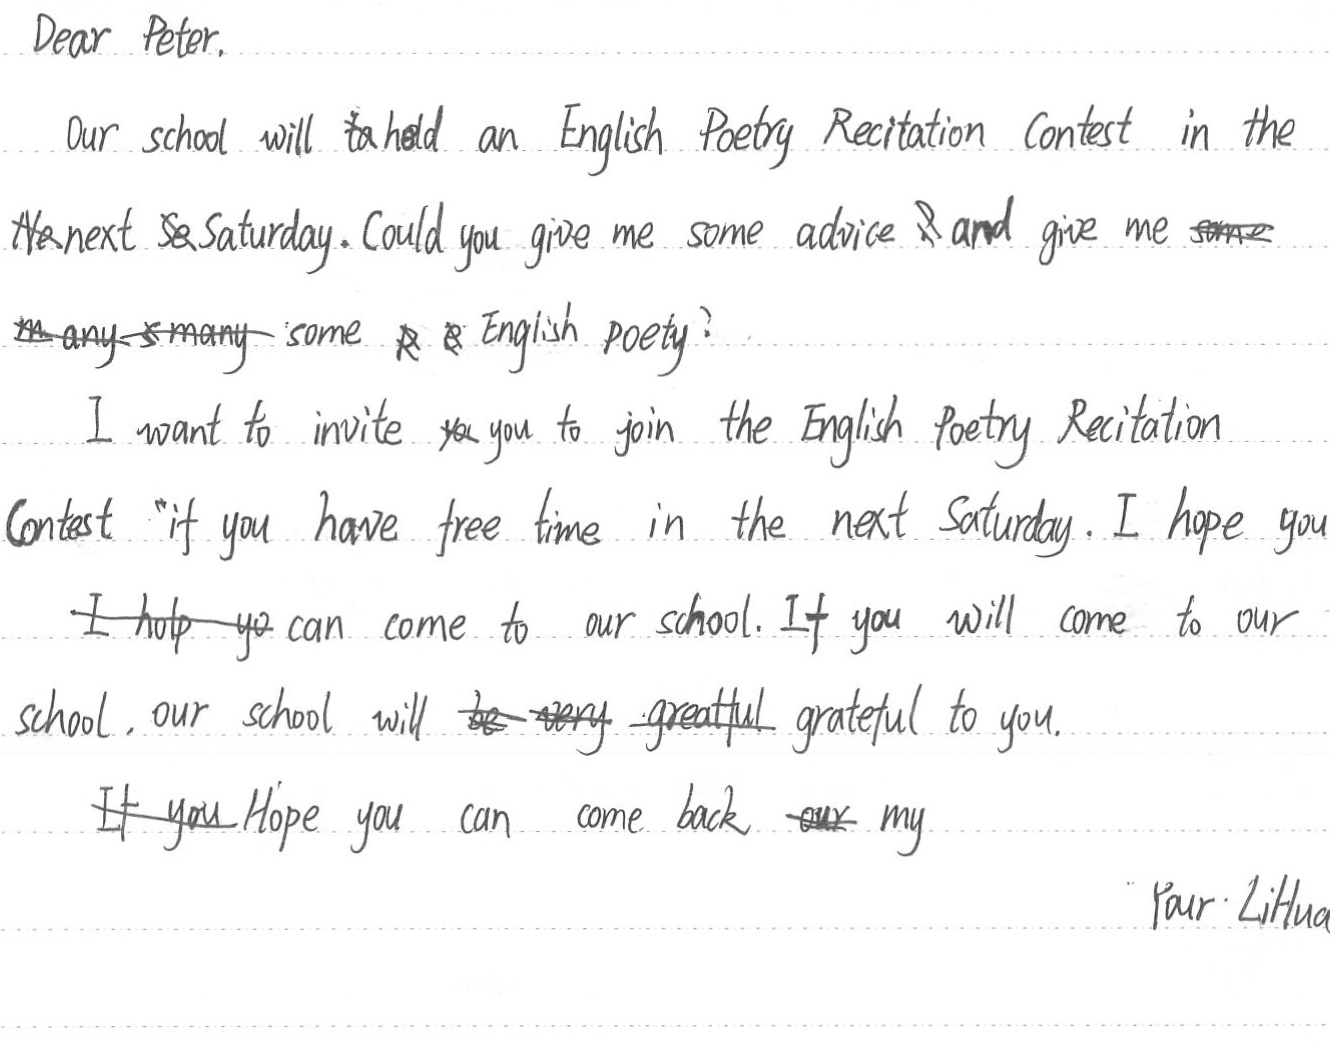 Dear Peter,
Our school will hold an English Poetry Recitation Contest in the
next Saturday. Could you give me some advice and give me
some English poety?
I want to invite you to join the English Poetry Recitation
Contest if you have free time in the next Saturday. I hope you
can come to our school. If you will come to our
school, our school will grateful to you.
Hope you can come back my
Your LiHua